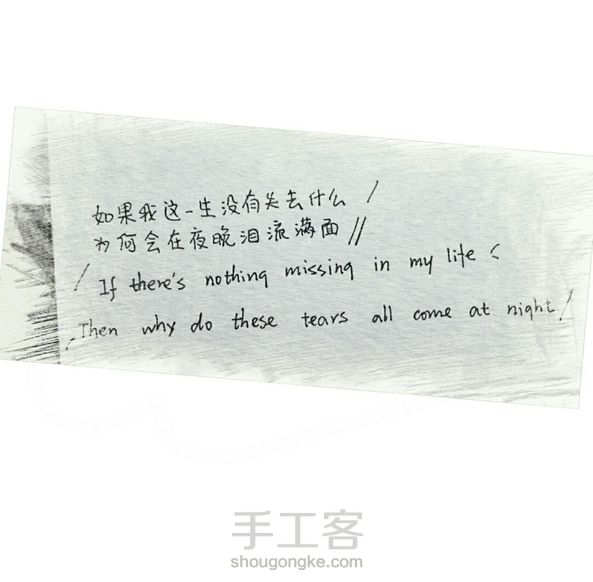 如果我这一生没有失去什么 /
为何会在夜晚泪流满面 //
/ If there's nothing missing in my life <
/ Then why do these tears all come at night /
手工客
shougongke.com